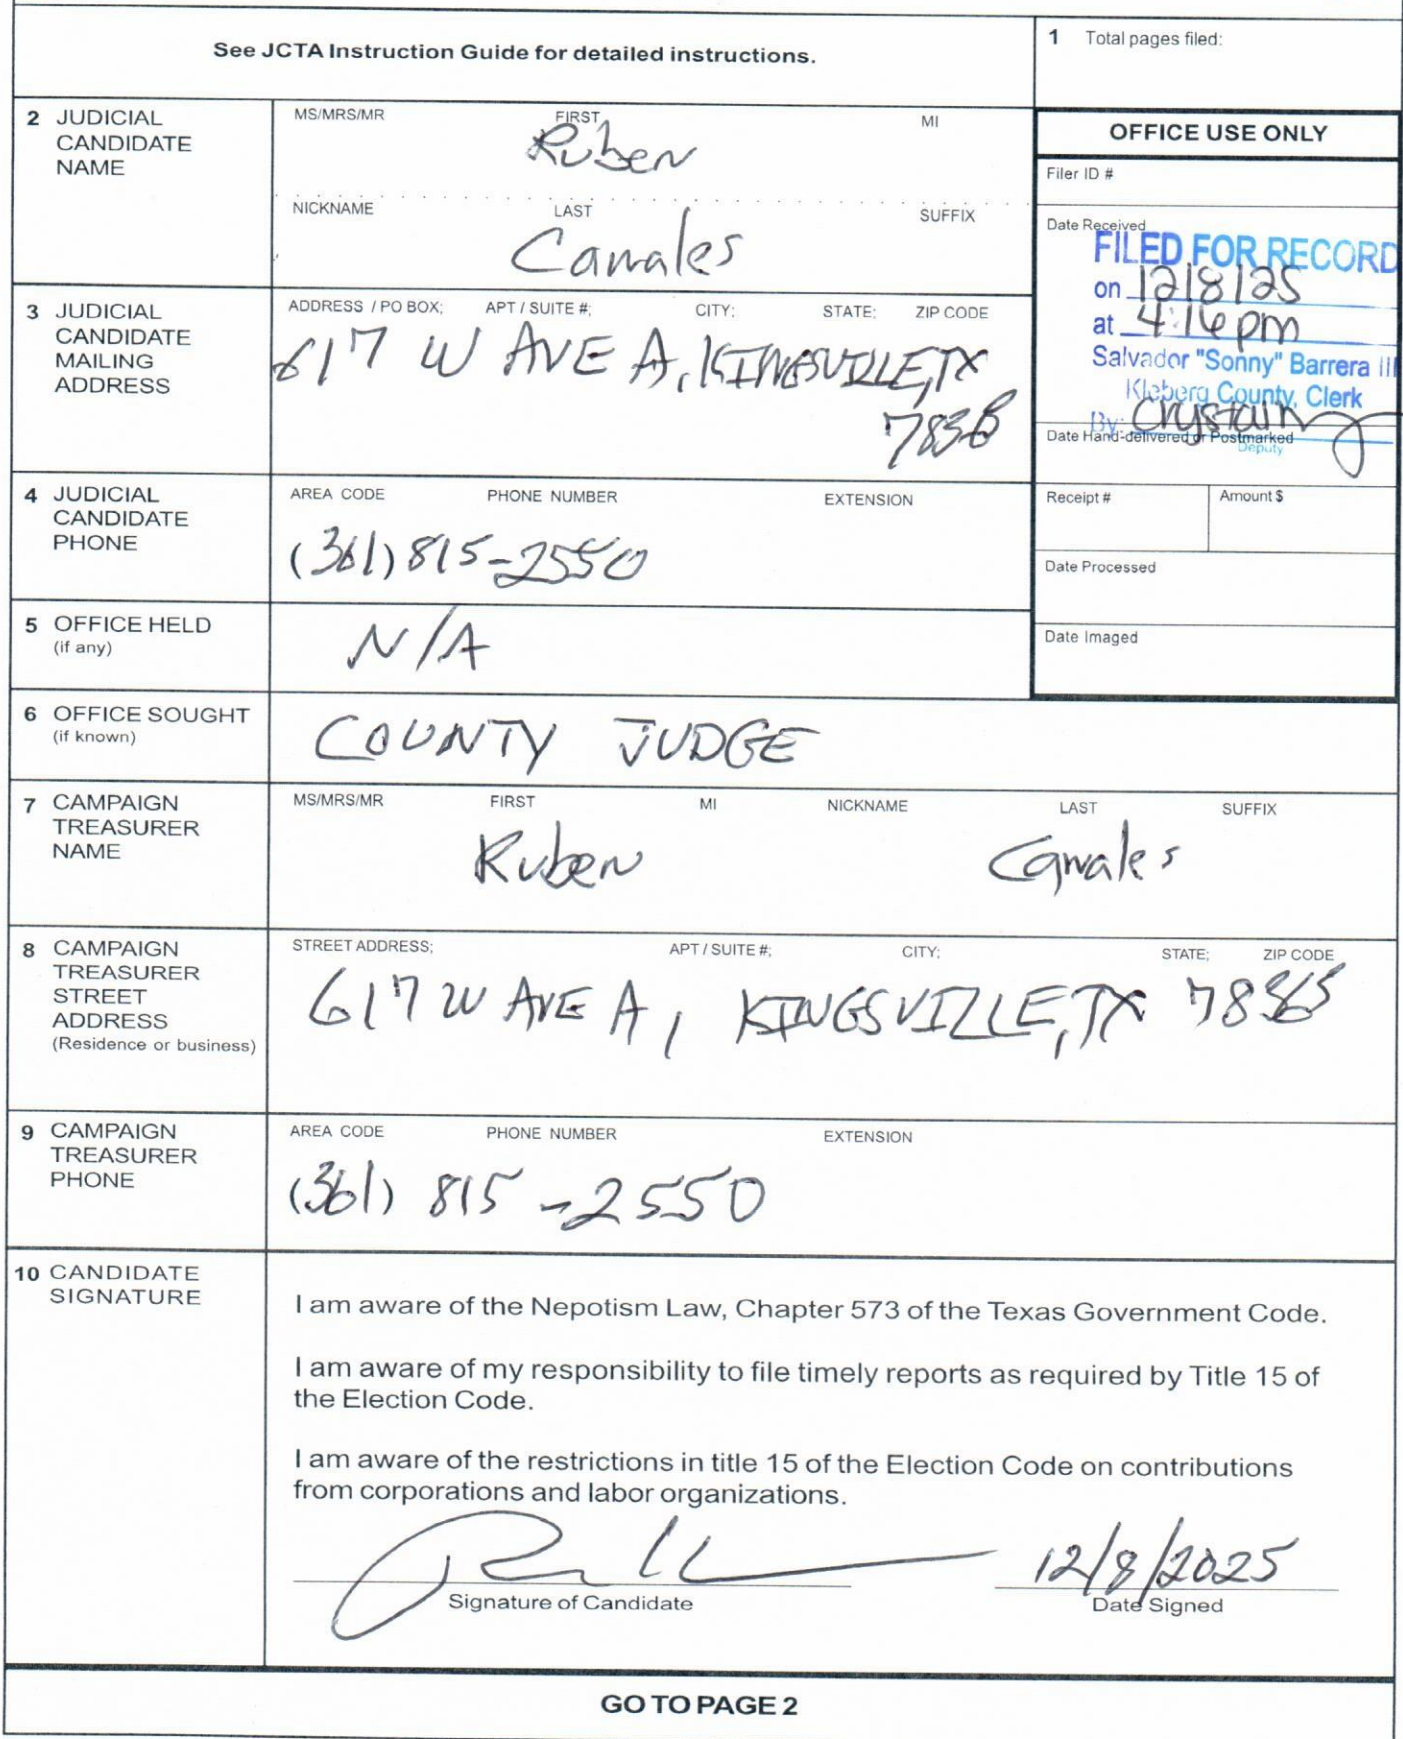 See JCTA Instruction Guide for detailed instructions.
1 Total pages filed:
2 JUDICIAL CANDIDATE NAME
MS/MRS/MR FIRST MI
Ruben
NICKNAME LAST SUFFIX
Canales
OFFICE USE ONLY
Filer ID #
Date Received
FILED FOR RECORD
on 12/8/25
at 4:16 pm
Salvador "Sonny" Barrera III
Kleberg County, Clerk
By:
Deputy
Date Hand-delivered or Postmarked
3 JUDICIAL CANDIDATE MAILING ADDRESS
ADDRESS / PO BOX; APT / SUITE #; CITY; STATE; ZIP CODE
617 W AVE A, KINGSVILLE, TX
Receipt #
Amount $
Date Processed
Date Imaged
4 JUDICIAL CANDIDATE PHONE
AREA CODE PHONE NUMBER EXTENSION
(361) 815-2550
5 OFFICE HELD
(if any)
N/A
6 OFFICE SOUGHT
(if known)
COUNTY JUDGE
7 CAMPAIGN TREASURER NAME
MS/MRS/MR FIRST MI NICKNAME LAST SUFFIX
Ruben Canales
8 CAMPAIGN TREASURER STREET ADDRESS
(Residence or business)
STREET ADDRESS; APT / SUITE #; CITY; STATE; ZIP CODE
617 W AVE A, KINGSVILLE, TX
9 CAMPAIGN TREASURER PHONE
AREA CODE PHONE NUMBER EXTENSION
(361) 815-2550
10 CANDIDATE SIGNATURE
I am aware of the Nepotism Law, Chapter 573 of the Texas Government Code.
I am aware of my responsibility to file timely reports as required by Title 15 of
the Election Code.
I am aware of the restrictions in title 15 of the Election Code on contributions
from corporations and labor organizations.
12/8/2025
Signature of Candidate
Date Signed
GO TO PAGE 2